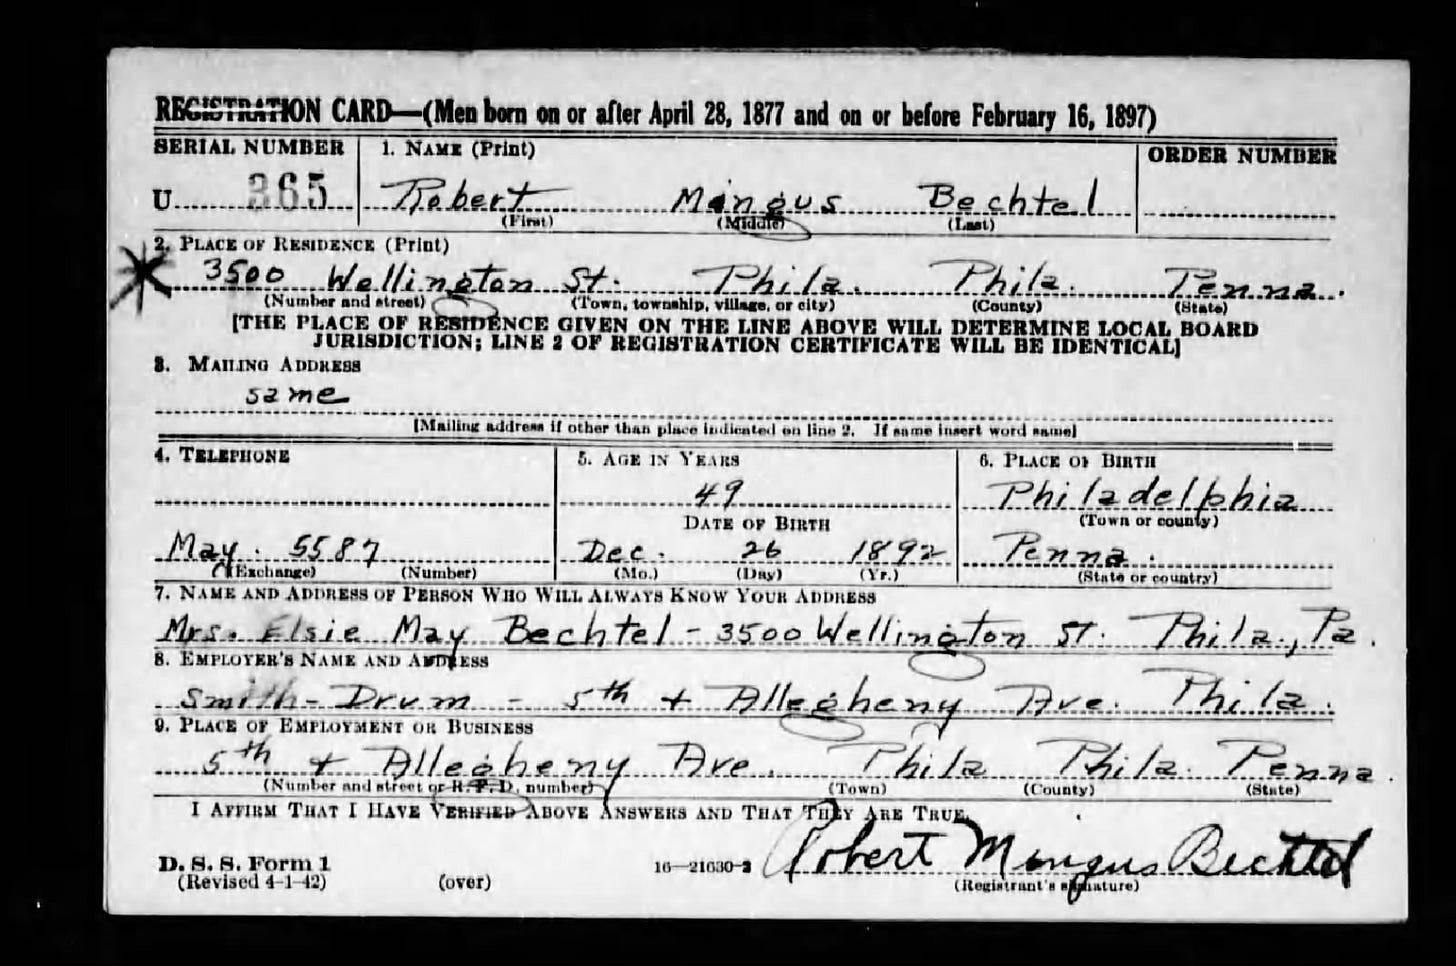 REGISTRATION CARD—(Men born on or after April 28, 1877 and on or before February 16, 1897)
SERIAL NUMBER 1. NAME (Print) ORDER NUMBER
U 365 Robert Mingus Bechtel
(First) (Middle) (Last)
2. PLACE OF RESIDENCE (Print)
3500 Wellington St. Phila. Phila. Penna.
(Number and street) (Town, township, village, or city) (County) (State)
[THE PLACE OF RESIDENCE GIVEN ON THE LINE ABOVE WILL DETERMINE LOCAL BOARD
JURISDICTION; LINE 2 OF REGISTRATION CERTIFICATE WILL BE IDENTICAL]
3. MAILING ADDRESS
same
[Mailing address if other than place indicated on line 2. If same insert word same]
4. TELEPHONE 5. AGE IN YEARS 6. PLACE OF BIRTH
49 Philadelphia
DATE OF BIRTH (Town or county)
May. 5587 Dec. 26 1892 Penna.
(Exchange) (Number) (Mo.) (Day) (Yr.) (State or country)
7. NAME AND ADDRESS OF PERSON WHO WILL ALWAYS KNOW YOUR ADDRESS
Mrs. Elsie May Bechtel - 3500 Wellington St. Phila., Pa.
8. EMPLOYER'S NAME AND ADDRESS
Smith-Drum - 5th + Allegheny Ave. Phila.
9. PLACE OF EMPLOYMENT OR BUSINESS
5th + Allegheny Ave. Phila Phila. Penna.
(Number and street or R. F. D. number) (Town) (County) (State)
I AFFIRM THAT I HAVE VERIFIED ABOVE ANSWERS AND THAT THEY ARE TRUE.
D. S. S. Form 1 Robert Mingus Bechtel
(Revised 4-1-42) (over) 16—21630-2 (Registrant's signature)